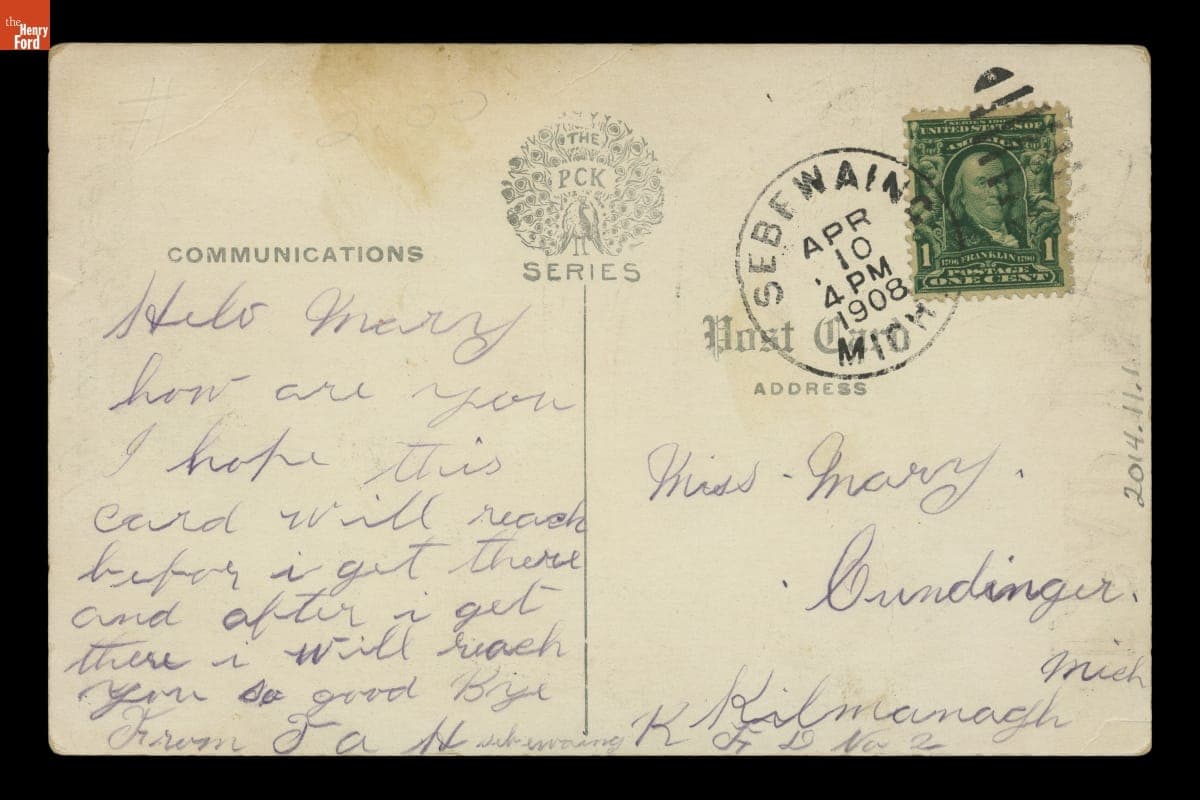 the
Henry
Ford
THE
PCK
SERIES
COMMUNICATIONS
Helo Mary
how are you
I hope this
card will reach
befor i get there
and after i get
there i will reach
you so good Bye
From J a H sebewaing
SEBEWAING
APR
10
4 PM
1908
MICH
SERIES 1902
UNITED STATES OF
AMERICA
1 1
1706 FRANKLIN 1790
POSTAGE
ONE CENT
Post Card
ADDRESS
Miss Mary.
Cundinger.
Mich
K Kilmanagh
F D No 2
2014.41.1